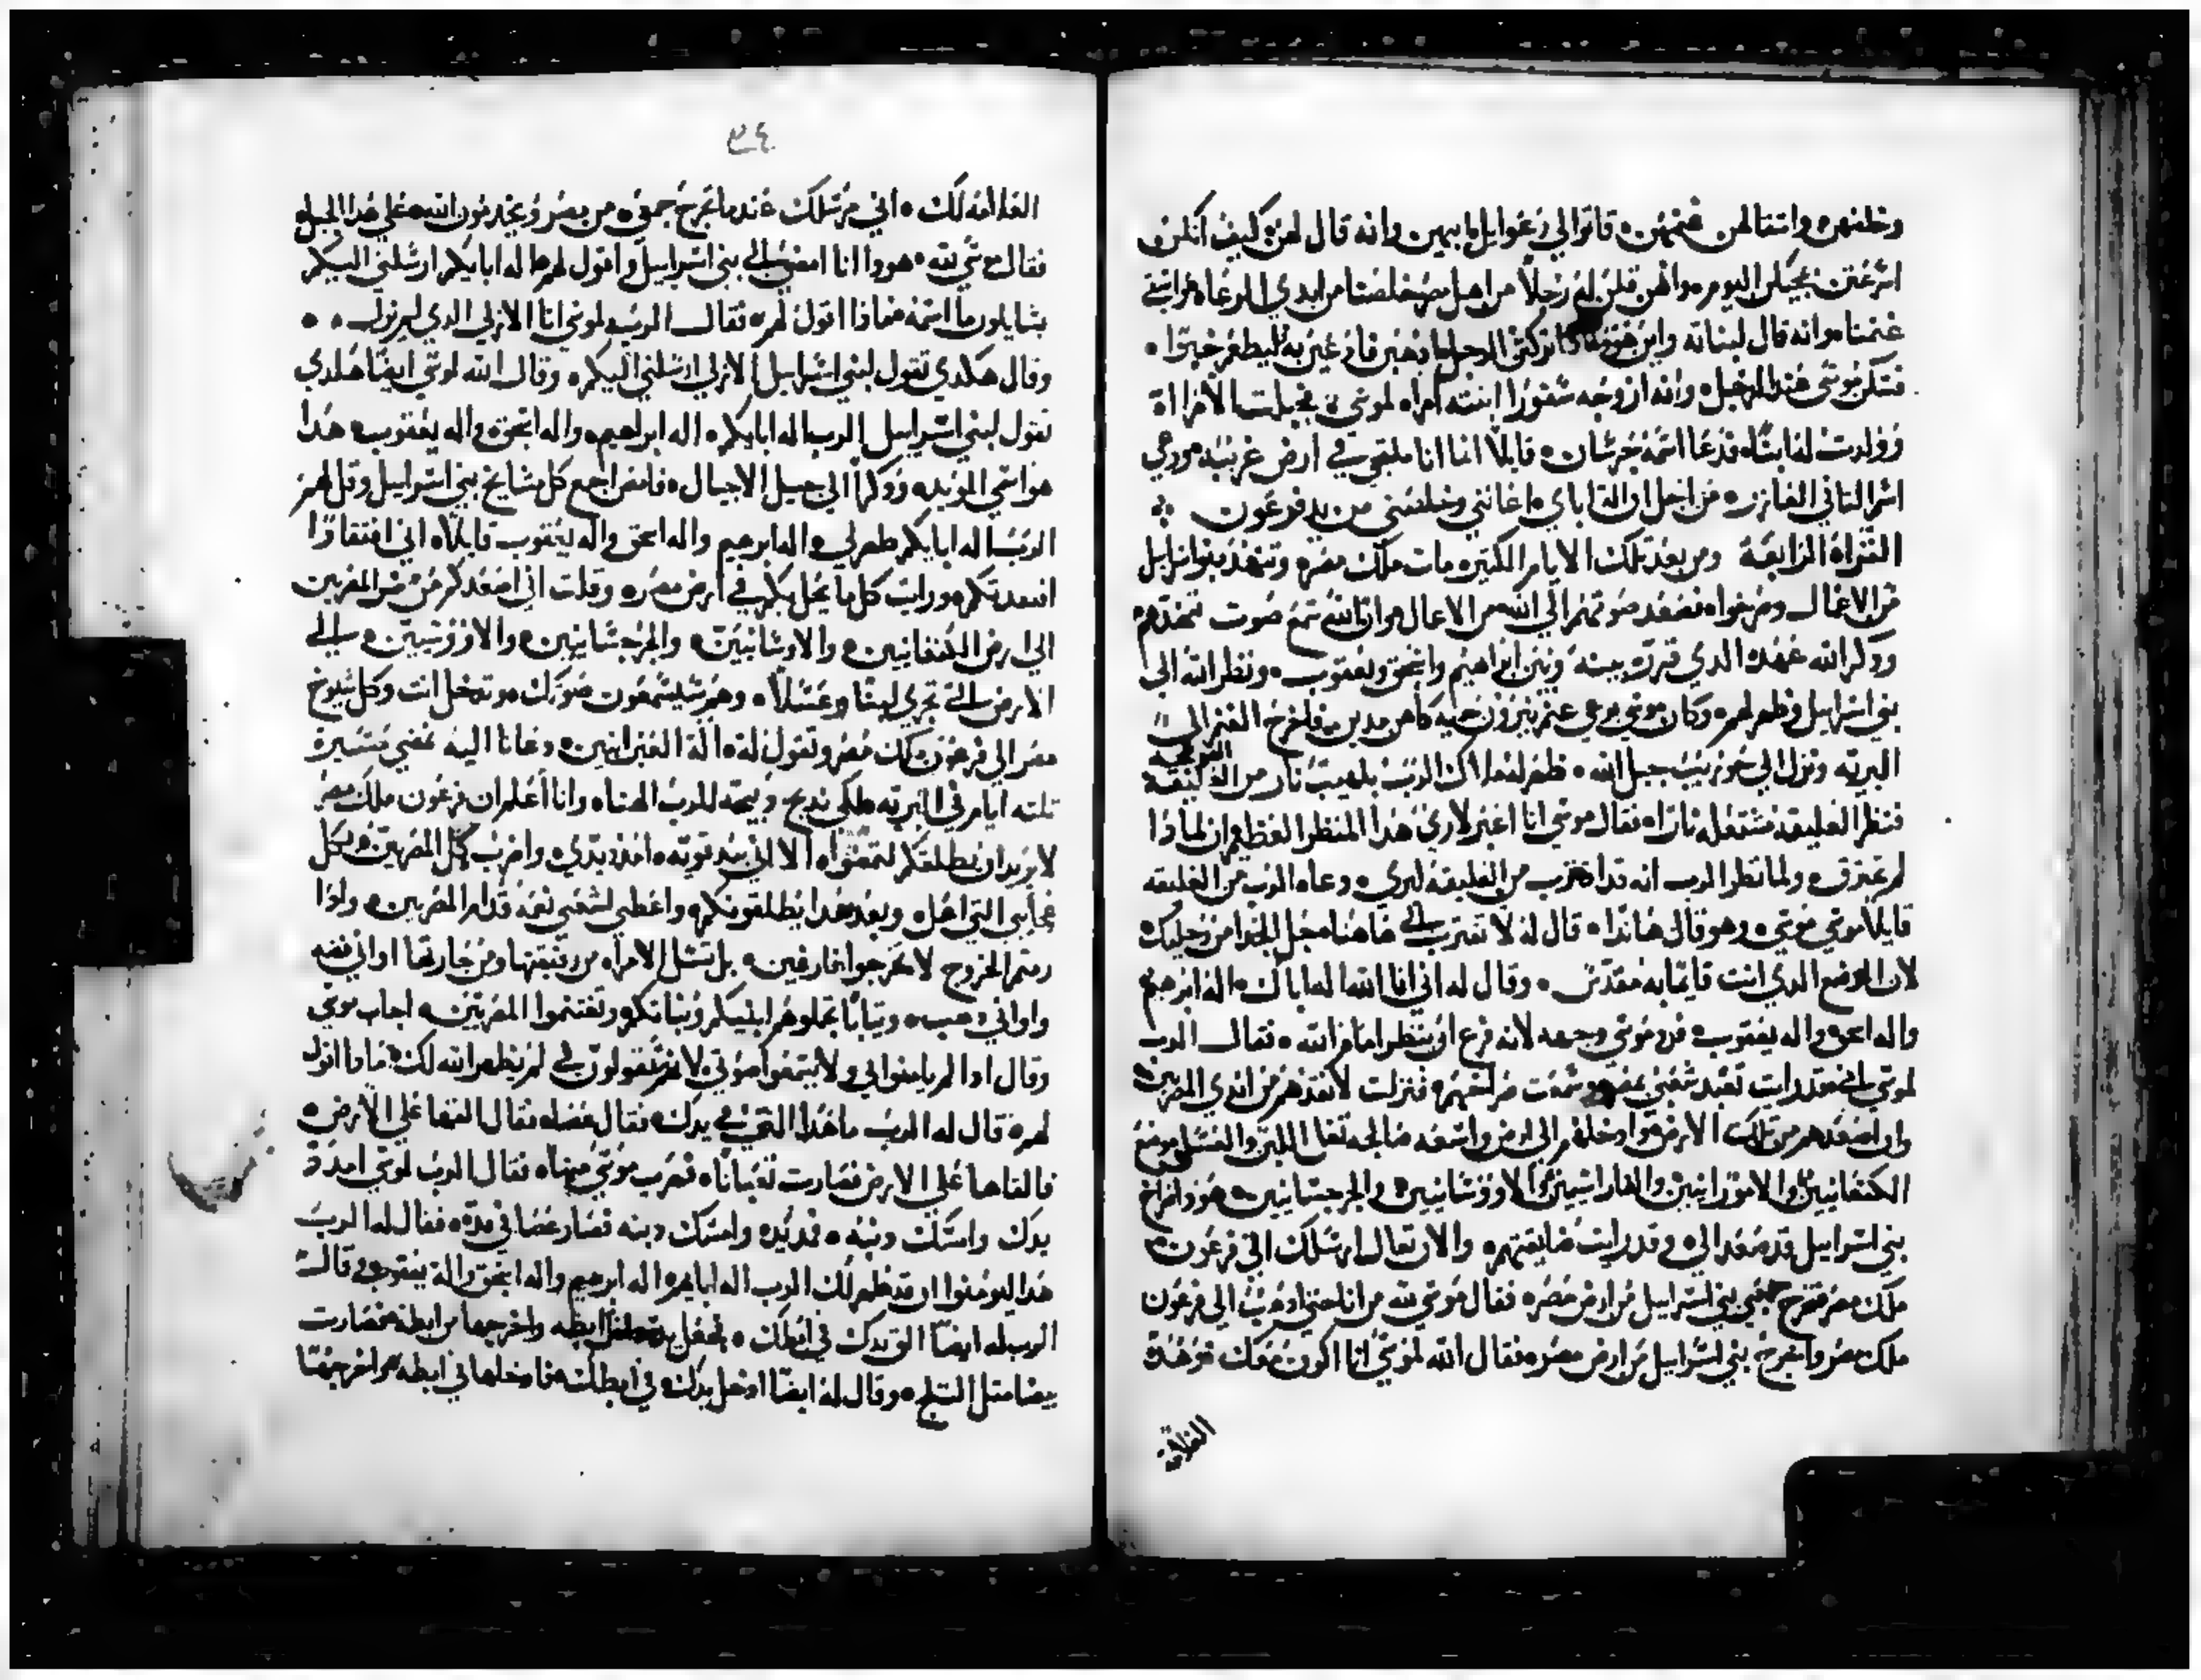 وخلصهن واستقا لهن غنمهن فاتوا الي رعوايل ابيهن وانه قال لهن كيف انكن
اسرعتن بمجيكن اليوم وانهن قلن له رجلاً من اهل مصر خلصنا من ايدي الرعاه واسقي
غنمنا وانه قال لبناته واين هو تركتن الرجل اذهبن فادعين به ليطعم خبزا
فسكن موسي عند الرجل وانه ازوجه صفورا ابنته امراه لموسي فحبلت الامراة
وولدت له ابناً فدعا اسمه جرشان قايلاً انا ملتجي في ارض غريبه ودعي
اسم التاني الغازر من اجل ان اله اباي اعانني وخلصني من يد فرعون
القراه الرابعة ومن بعد تلك الايام الكتيره مات ملك مصر وتنهد بنوا اسرايل
من الاعمال وصرخوا فصعد صوتهم الي الله من الاعمال وان الله سمع صوت تنهدهم
ودكر الله عهده الدي قرره بينه وبين ابراهيم واسحق ويعقوب ونظر الله الي
بني اسرايل وظهر لهم وكان موسي يرعي غنم يترون حميه كاهن مدين فاخرج الغنم الي
البريه ونزل الي حوريب جبل الله فظهر له ملاك الرب بلهيب نار من العليقة
فنظر العليقه مشتعله نارا فقال موسي انا اعبر لاري هدا المنظر العظيم ان لمادا
لم تحترق ولما نظر الرب انه قد اقترب من العليقه ليري دعاه الرب من العليقه
قايلاً موسي موسي وهو قال هاندا قال له لا تقترب الي هاهنا حل الحدا من رجليك
لان الموضع الدي انت قايماً به مقدس وقال له اني انا الله اله اباك اله ابرهيم
واله اسحق واله يعقوب فرد موسي وجهه لانه فزع ان ينظر امام الله فقال الرب
لموسي اني قد رايت تعبد شعبي بمصر وسمعت صراخهم فنزلت لانقدهم من ايدي المصريين
وان اصعدهم من تلك الارض وادخلهم الي ارض واسعه صالحه تفيض اللبن والعسل موضع
الكنعانيين والامورانيين والفارازيين والاوزشانيين والجرجسانيين هودا صراخ
بني اسرايل قد صعد الي وقد رايت ضايقتهم والان تعال ارسلك الي فرعون
ملك مصر فتخرج شعبي بني اسرايل من ارض مصر فقال موسي لله من انا حتي ادهب الي فرعون
ملك مصر واخرج بني اسرايل من ارض مصر فقال الله لموسي انا اكون معك وهده
العلامة
٣٤
العلامه لك اني مرسلك عندما تخرج شعبي من مصر ويخدمون الله علي هدا الجبل
فقال موسي لله هودا انا امضي الي بني اسرايل واقول لهم اله ابايكم ارسلني اليكم
يسايلون ما اسمه فمادا اقول لهم فقال الرب لموسي انا الازلي الدي لم يزول
وقال هكدي تقول لبني اسرايل الازلي ارسلني اليكم وقال الله لموسي ايضاً هكدي
تقول لبني اسرايل الرب اله ابايكم اله ابراهيم واله اسحق واله يعقوب هدا
هو اسمي المويد ودكراً الي جيل الاجيال فامض اجمع كل مشايخ بني اسرايل وقل لهم
الرب اله ابايكم ظهر لي اله ابرهيم واله اسحق واله يعقوب قايلاً اني افتقاداً
افتقدتكم ورايت كل ما يحل بكم في ارض مصر وقلت اني اصعدكم من ضر المصريين
الي ارض الكنعانيين والاوشانيين والجرجسانيين والاوزشيين الي
الارض التي تجري لبناً وعسلاً وهم سيسمعون صوتك وتدخل انت وكل شيوخ
مصر الي فرعون ملك مصر وتقول له اله العبرانيين دعانا اليه نمضي مسيرة
تلته ايام في البريه لكي ندبح دبيحه للرب الهنا وانا اعلم ان فرعون ملك مصر
لا يريد ان يطلقكم لتمضوا الا ان بيد قويه امد يدي واضرب كل المصريين بكل
عجايبي التي اعمل وبعد هدا يطلقونكم واعطي لشعبي نعمه قدام المصريين وادا
رمتم الخروج لا تخرجوا فارغين بل تسل الامراه من رفيقتها ومن جارتها اواني فضه
واواني دهب وتياباً تجعلوهم لبنيكم وبناتكم وتغتنموا المصريين اجاب موسي
وقال ادا لم يامنوا بي ولا يسمعوا صوتي لانهم سيقولون لي لم يظهر الله لك مادا اقول
لهم قال له الرب ما هدا التي في يدك فقال عصا فقال القها علي الارض
فالقاها علي الارض فصارت تعباناً فهرب موسي منها فقال الرب لموسي امدد
يدك وامسك دنبه فمد يده وامسك دنبه فصار عصا في يده فقال له الرب
هدا ليومنوا ان قد ظهر لك الرب اله ابايهم اله ابرهيم واله اسحق واله يعقوب وقال
الرب له ايضاً الق يدك في ابطك فجعل يده في ابطه واخرجها من ابطه فصارت
بيضا متل التلج وقال له ايضاً ادخل يدك في ابطك فادخلها في ابطه واخرجها